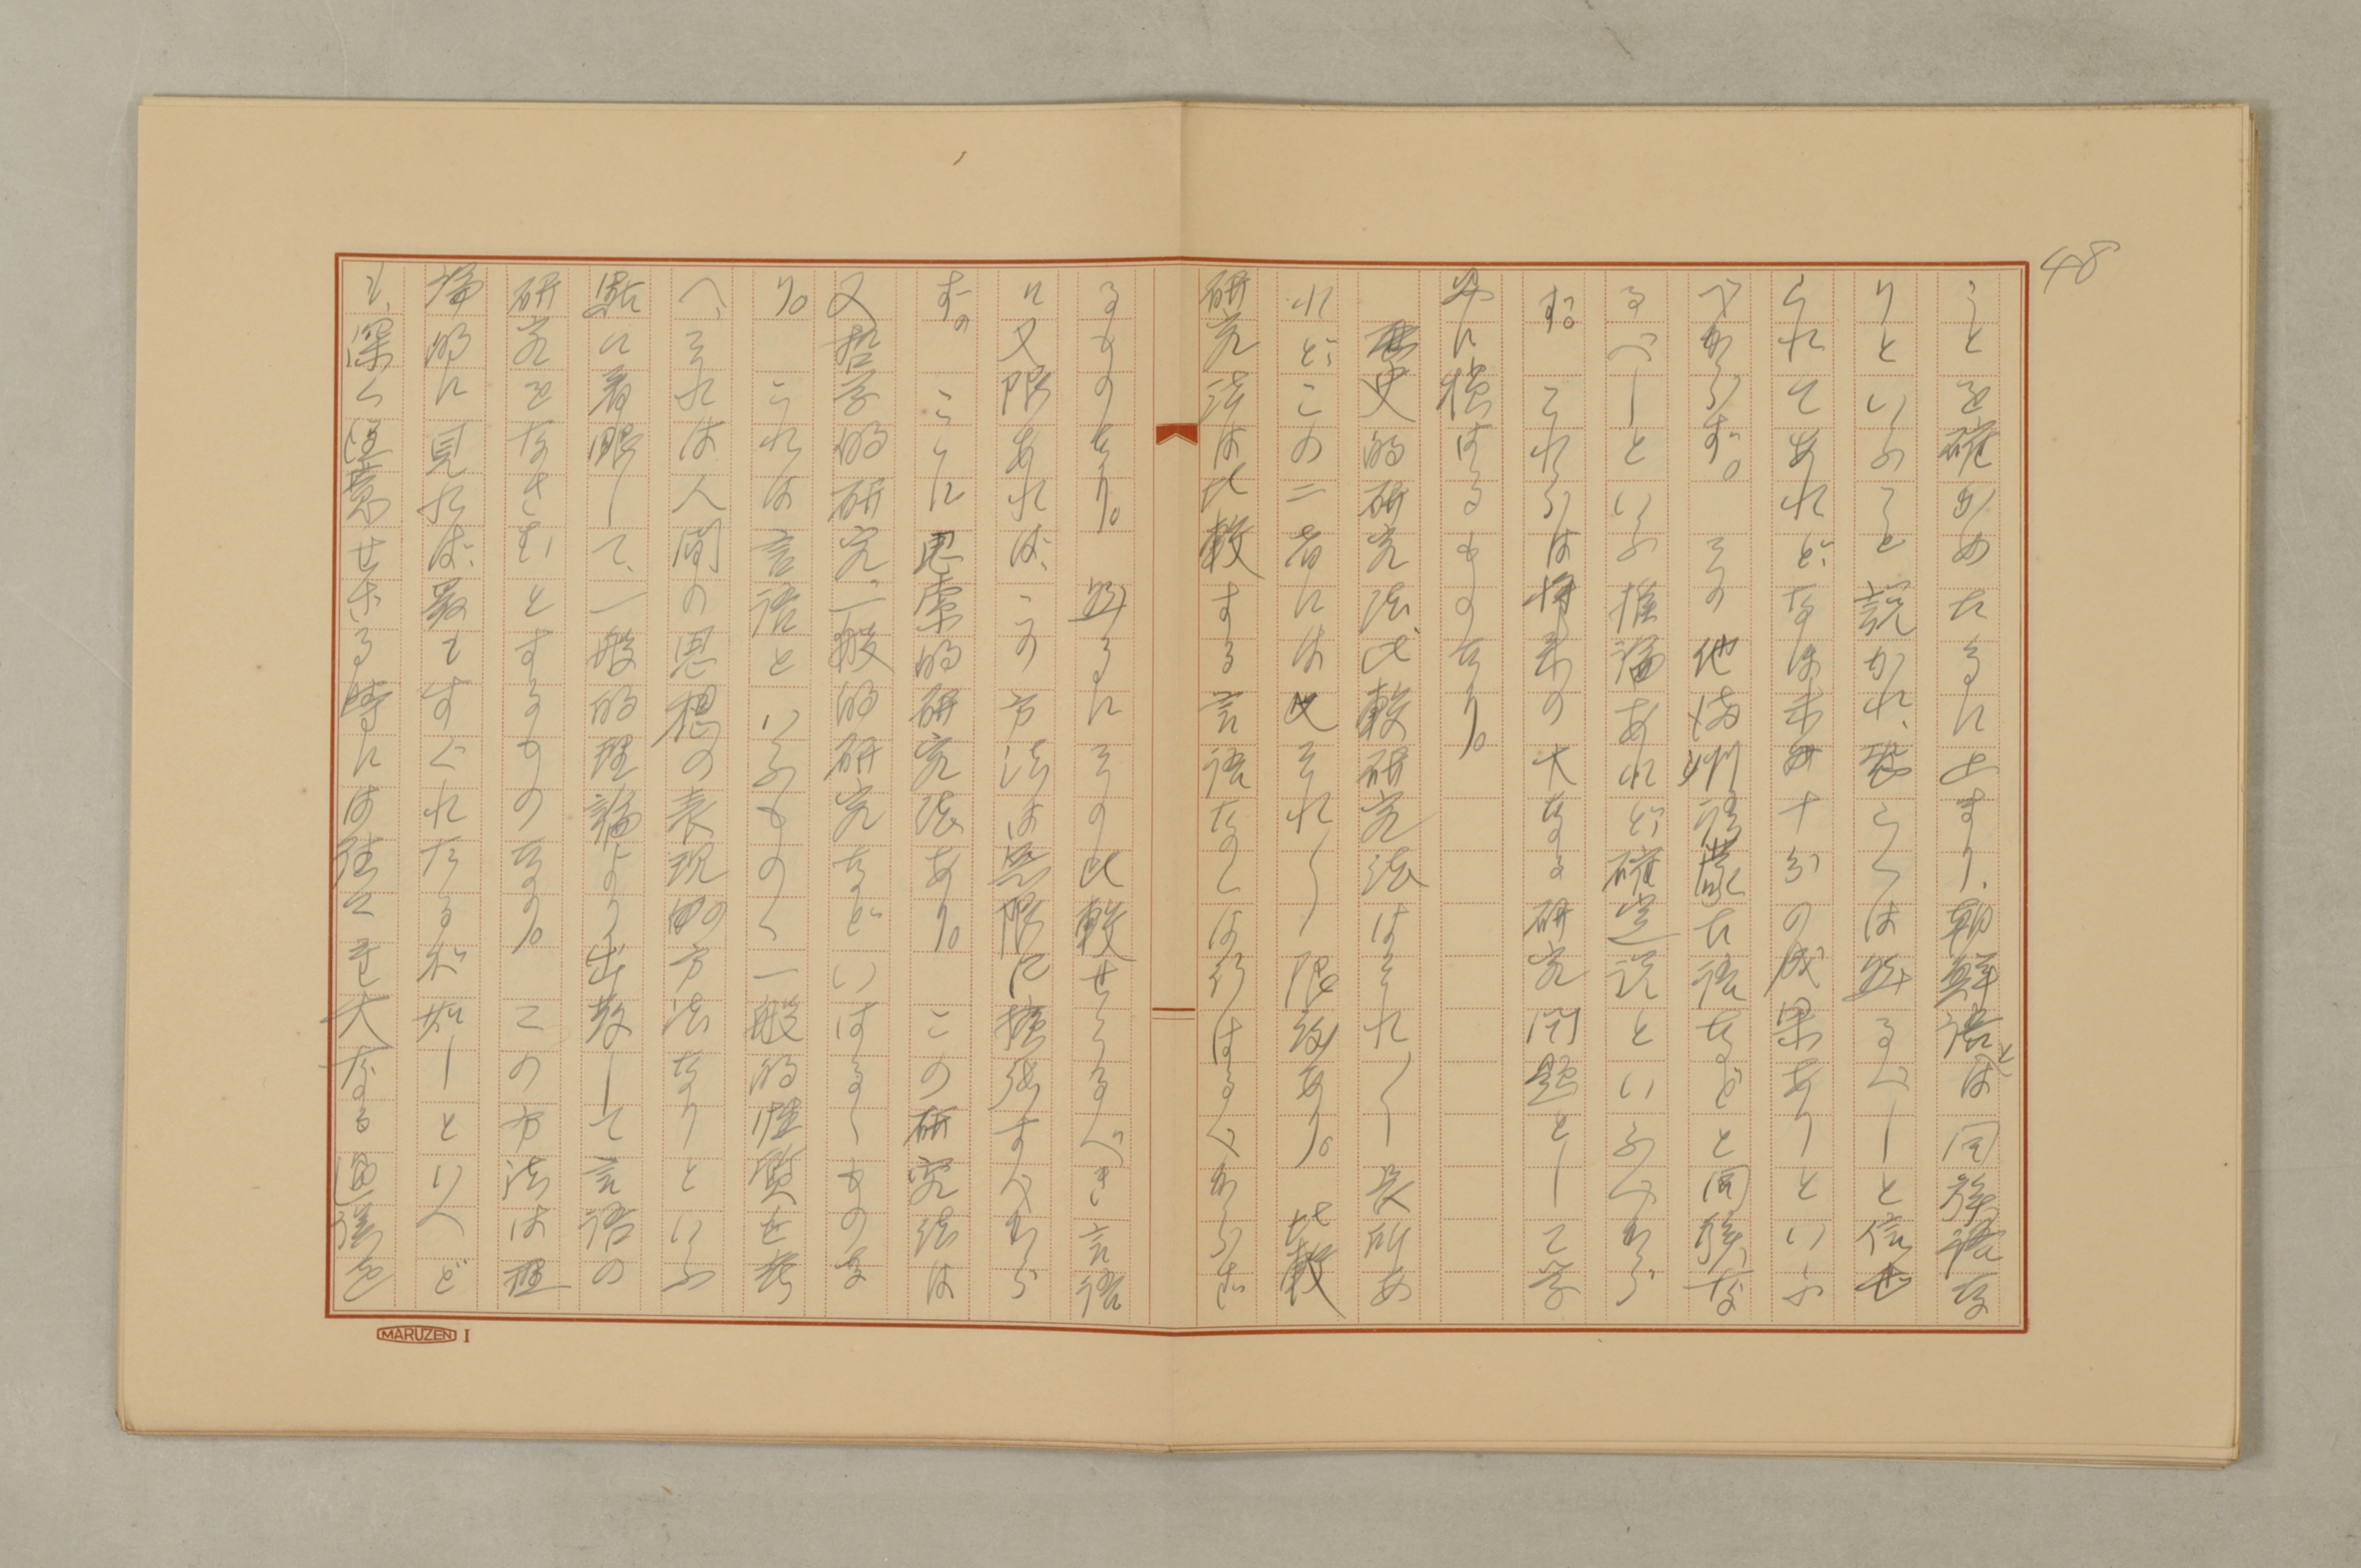 48
ことを確かめたるに止まり、朝鮮語とは同族語な
りといふこと説かれ、恐らくは然るべしと信ぜ
られてあれど、なほ未だ十分の成果ありといふ
べからず。その他満州語蒙古語などと同族な
るべしといふ推論あれど、確定説といふべから
ず。これらは将来の大なる研究問題として学
界に横はるものなり。
歴史的研究法、比較研究法はそれ〳〵長所あ
れど、この二者には又それ〳〵限界あり。比較
研究法は比較する言語なくば行はるべからざ
るものなり。然るにその比較せらるべき言語
に又限あれば、この方法は無限に拡張すべから
ず。ここに思索的研究法あり。この研究法は
又哲学的研究、一般的研究などいはるゝものな
り。これは言語といふものゝ一般的性質を考
へ、それは人間の思想の表現の方法なりといふ
點に着眼して、一般的理論より出発して言語の
研究をなさむとするものなり。この方法は理
論的に見れば、最もすぐれたるが如しといへど
も、深く注意せざる時には往々にして大なる過誤を
MARUZEN I